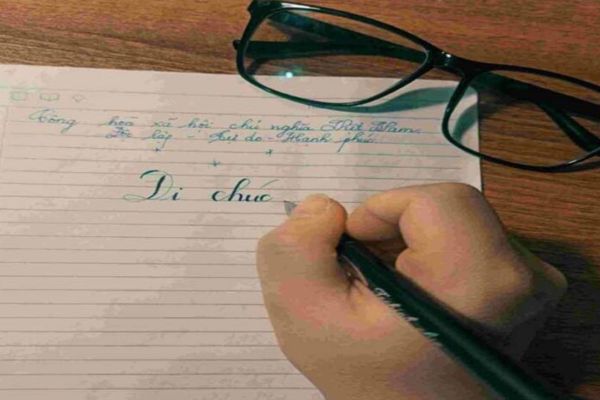 Cộng hoà xã hội chủ nghĩa Việt Nam
Độc lập - Tự do - Hạnh phúc
Di chúc